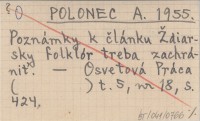 O POLONEC A. 1955.
Poznámky k článku Ždiar-
sky folklór treba zachrá-
niť. — Osvetová práca
( ) t. 5, nr 18, s.
424.